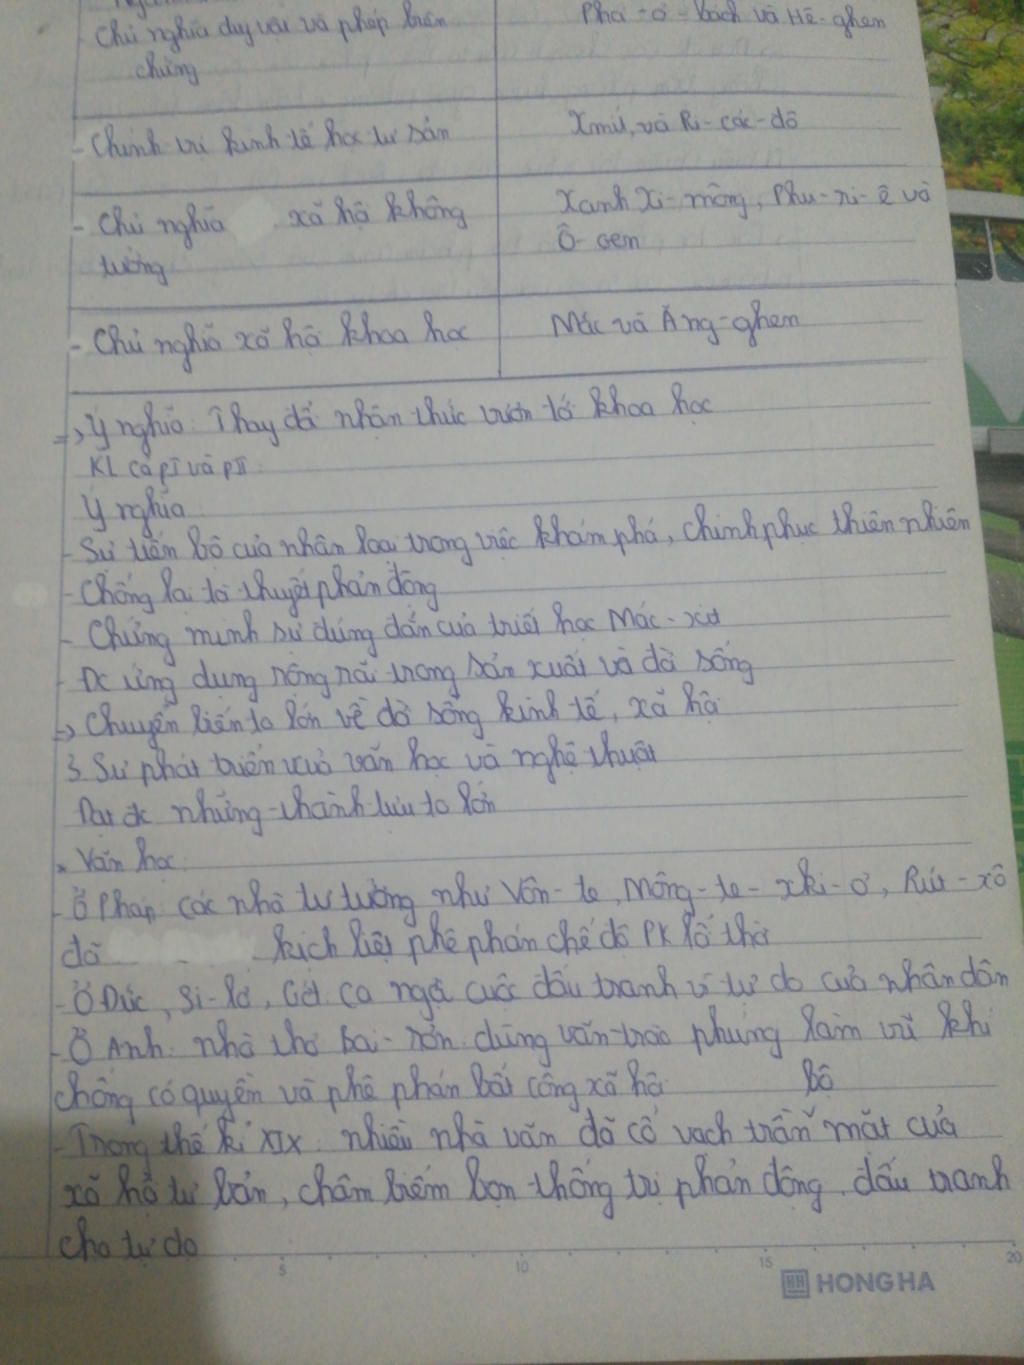 - Chủ nghĩa duy vật và phép biện
chứng
Phơ-ơ-bách và Hê-ghen
- Chính trị kinh tế học tư sản
Xmit, và Ri-các-đô
- Chủ nghĩa xã hội không
tưởng
Xanh Xi-mông, Phu-ri-ê và
Ô-oen
- Chủ nghĩa xã hội khoa học
Mác và Ăng-ghen
=> Ý nghĩa: Thay đổi nhận thức vươn tới khoa học
KL cả pI và pII
Ý nghĩa
- Sự tiến bộ của nhân loại trong việc khám phá, chinh phục thiên nhiên
- Chống lại tà thuyết phản động
- Chứng minh sự đúng đắn của triết học Mác-xít
- Đc ứng dụng rộng rãi trong sản xuất và đời sống
-> Chuyển biến to lớn về đời sống kinh tế, xã hội
3 Sự phát triển của văn học và nghệ thuật
Đạt đc những thành tựu to lớn
* Văn học
- Ở Pháp các nhà tư tưởng như Vôn-te, Mông-te-xki-ơ, Rút-xô
đã kịch liệt phê phán chế độ PK lỗi thời
- Ở Đức, Si-lơ, Gớt ca ngợi cuộc đấu tranh vì tự do của nhân dân
- Ở Anh: nhà thơ Bai-rơn dùng văn trào phúng làm vũ khí
chống cường quyền và phê phán bất công xã hội
- Trong thế kỉ XIX. nhiều nhà văn đã cố vạch trần bộ mặt của
xã hội tư bản, châm biếm bọn thống trị phản động. đấu tranh
cho tự do
5 10 15 20
HONG HA